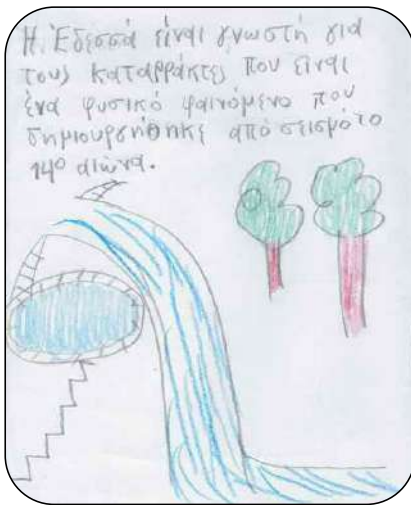 Η Έδεσσά είναι γνωστή για
τους καταρράκτες που είναι
ένα φυσικό φαινόμενο που
δημιουργήθηκε από σεισμό το
14º αιώνα.